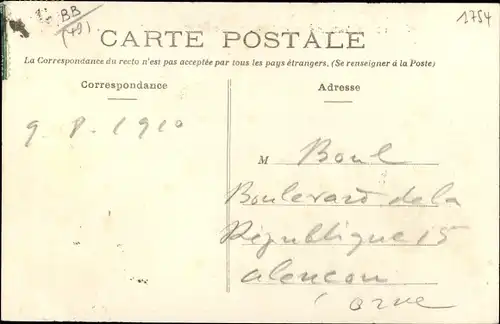 BB
(49)
1754
CARTE POSTALE
La Correspondance du recto n'est pas acceptée par tous les pays étrangers. (Se renseigner à la Poste)
Correspondance
Adresse
9. 8. 1910
M Boul
Boulevard de la
République 15
alencon
orne